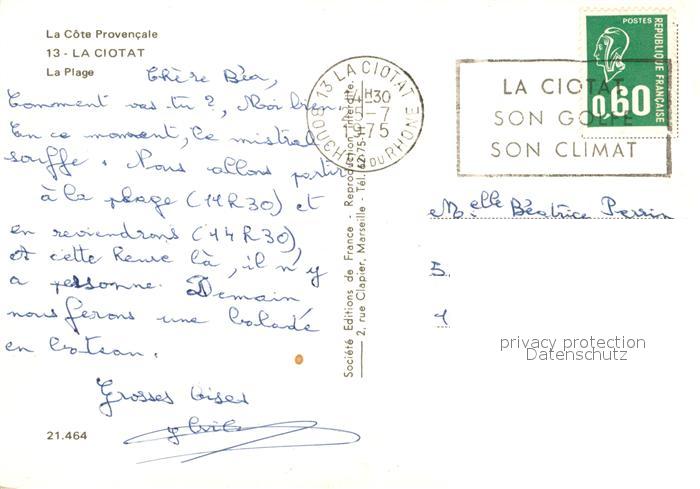 La Côte Provençale
13 - LA CIOTAT
La Plage
Chère Béa,
Comment vas-tu ?, Moi bien
En ce moment, le mistral
souffle. Nous allons partir
à la plage (11h30) et
en reviendrons (14h30),
et cette heure là, il n'y
a personne. Demain
nous ferons une balade
en bateau.
Grosses bises
21.464
Société Editions de France - Reproduction interdite.
2, rue Clapier, Marseille - Tél. 62-75-
13 LA CIOTAT
14H30
-7
1975
BOUCHES DU RHONE
LA CIOTAT
SON GOLFE
SON CLIMAT
POSTES
REPUBLIQUE FRANÇAISE
0,60
Melle Béatrice Perrin
5.
privacy protection
Datenschutz